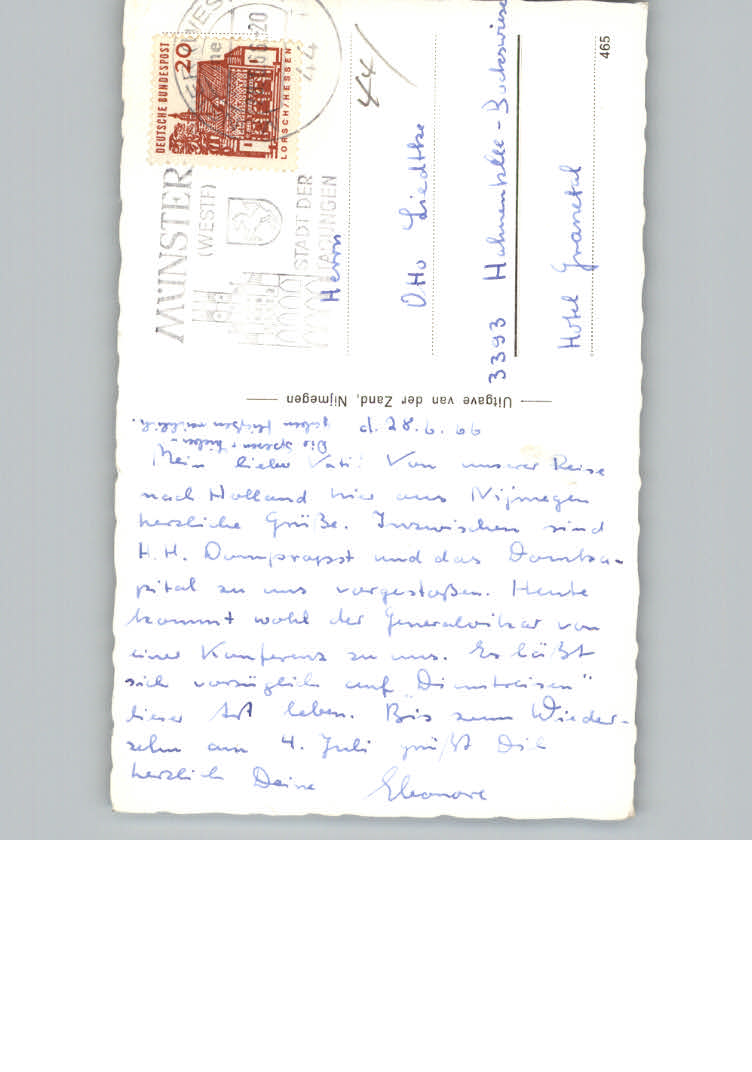 DEUTSCHE BUNDESPOST
20
LORSCH/HESSEN
MÜNSTER
(WESTF)
STADT DER
TAGUNGEN
44
Herrn
Otto Liedtke
3393 Hahnenklee-Bockswiese
Hotel Granetal
465
Uitgave van der Zand, Nijmegen
d. 28.6.66
Mein lieber Vati! Von unserer Reise
nach Holland hier aus Nijmegen
herzliche Grüße. Inzwischen sind
H.H. Domprobst und das Domka-
pital zu uns vorgestoßen. Heute
kommt wohl der Generalvikar von
einer Konferenz zu uns. Es läßt
sich vorzüglich auf "Dienstreisen"
dieser Art leben. Bis zum Wieder-
sehn am 4. Juli grüßt Dich
herzlich Deine Eleonore
Die Spesen
fließen reichlich.